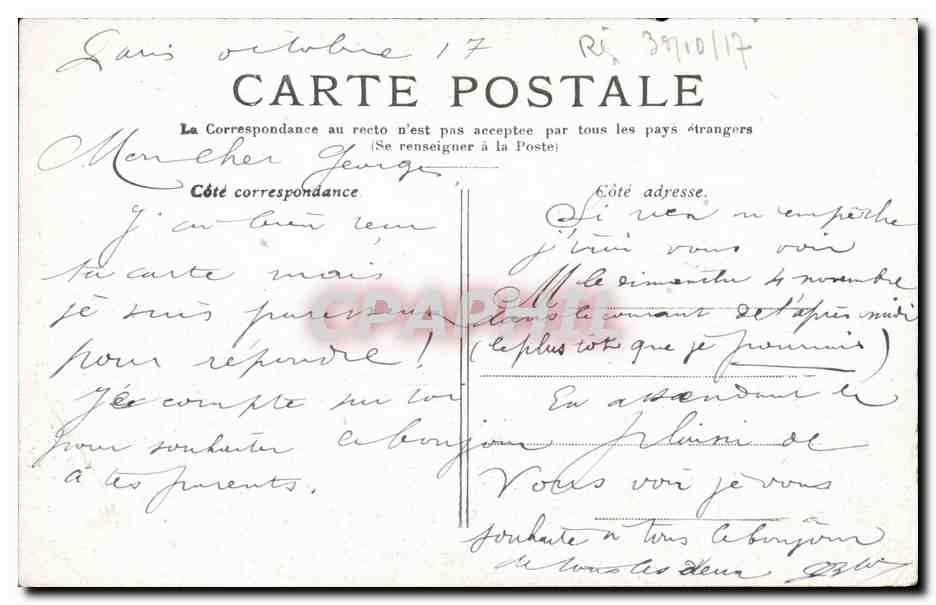 Paris octobre 17
Ré 30/10/17
CARTE POSTALE
La Correspondance au recto n'est pas acceptee par tous les pays étrangers
(Se renseigner à la Poste)
Mon cher Georges
Côté correspondance.
J'ai bien reçu
ta carte mais
je suis paresseux
pour répondre !
Je compte sur toi
pour souhaiter le bonjour
a tes parents.
Côté adresse.
Si rien n'empêche
j'irai vous voir
le dimanche 4 novembre
dans le courant de l'après midi
(le plus tot que je pourrais)
En attendant le
plaisir de
Vous voir je vous
souhaite a tous le bonjour
de tous les deux
CPAPHIL